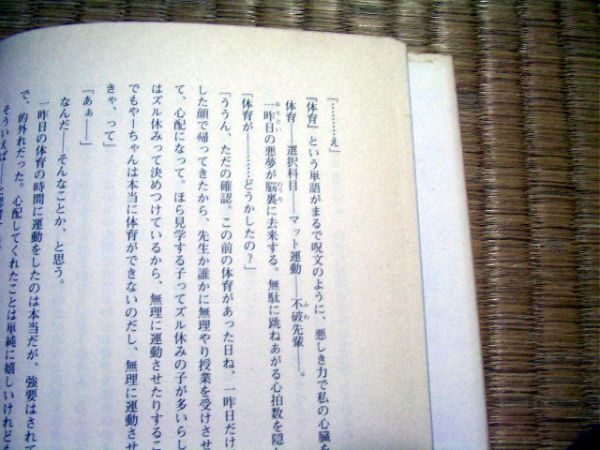 「…………え」
『体育』という単語がまるで呪文のように、悪しき力で私の心臓を
体育――選択科目――マット運動――不破先輩――。
一昨日の悪夢が脳裏に去来する。無駄に跳ねあがる心拍数を隠し
「体育が…………どうかしたの？」
「ううん、ただの確認。この前の体育があった日ね、一昨日だけ
した顔で帰ってきたから、先生か誰かに無理やり授業を受けさせ
て、心配になって。ほら見学する子ってズル休みの子が多いらし
はズル休みって決めつけているから、無理に運動させたりするこ
でもやーちゃんは本当に体育ができないのだし、無理に運動させ
きゃ、って」
「あぁ――」
なんだ――そんなことか、と思う。
一昨日の体育の時間に運動をしたのは本当だが、強要はされて
で、的外れだった。心配してくれたことは単純に嬉しいけれど
そういえば――と思考